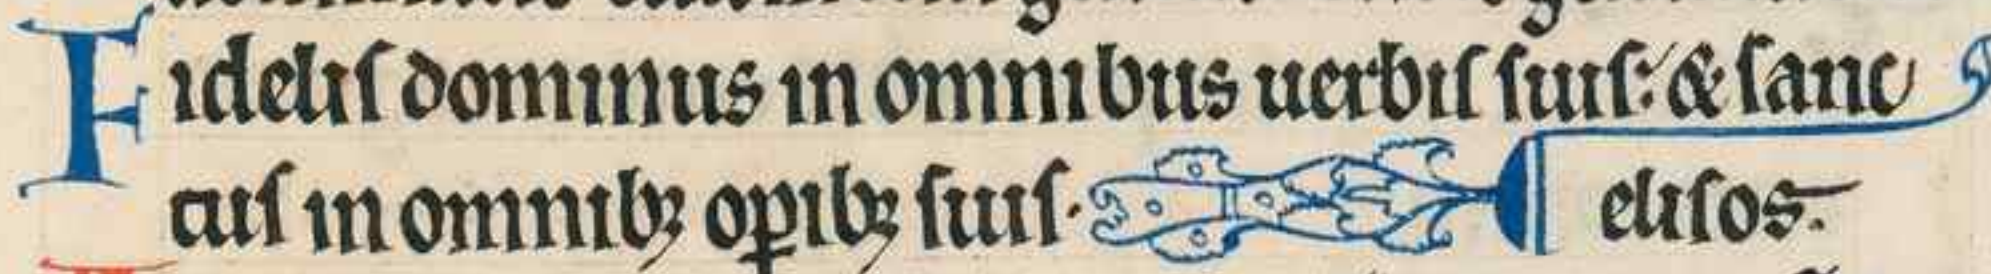 Fidelis dominus in omnibus uerbis suis: & sanc
tus in omnibꝫ oꝑibꝫ suis· elisos.